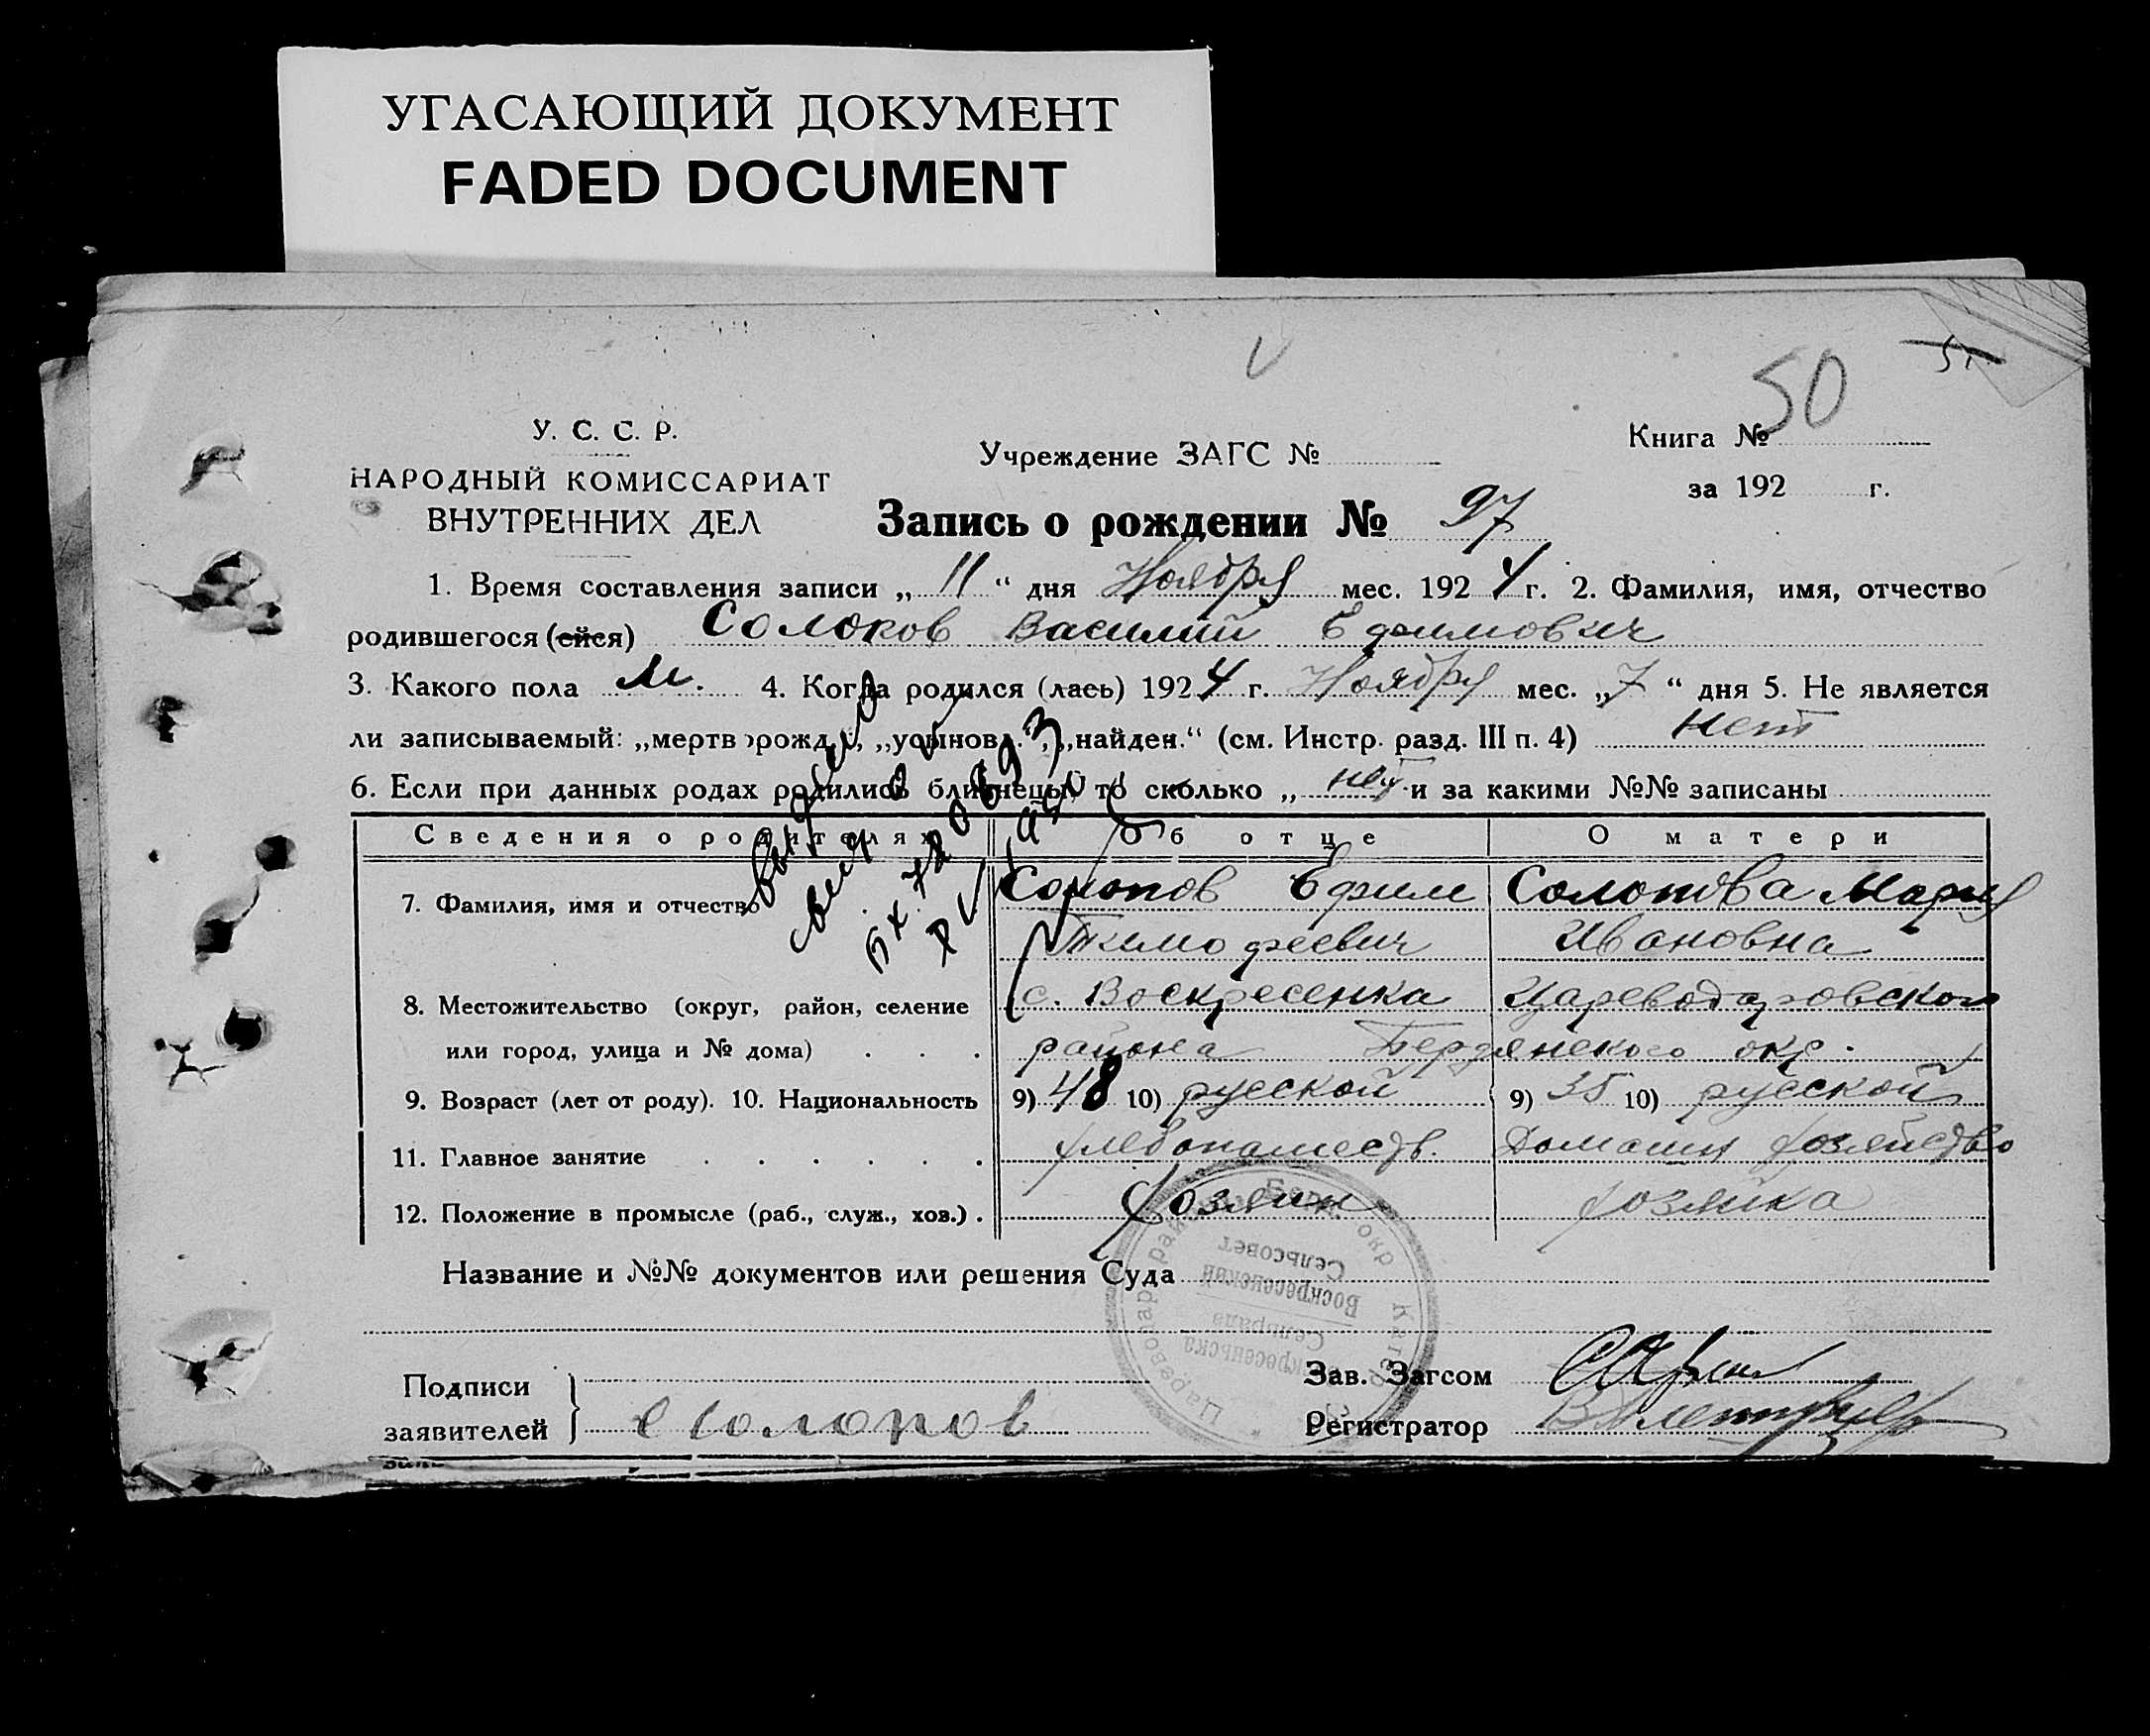 УГАСАЮЩИЙ ДОКУМЕНТ
FADED DOCUMENT
50
У. С. С. Р.
НАРОДНЫЙ КОМИССАРИАТ
ВНУТРЕННИХ ДЕЛ
Учреждение ЗАГС №
Книга №
за 192 г.
Запись о рождении № 97
1. Время составления записи „ 11 “ дня Ноября мес. 192 4 г. 2. Фамилия, имя, отчество
родившегося (ейся) Василий Ефимович
3. Какого пола м. 4. Когда родился (лась) 192 4 г. Ноября мес. „ 7 “ дня 5. Не является
ли записываемый: „мертворожд.“, „усыновл.“, „найден.“ (см. Инстр. разд. III п. 4) нет
6. Если при данных родах родились близнецы, то сколько „ нет и за какими №№ записаны
Сведения о родителях Об отце О матери
7. Фамилия, имя и отчество Ефим Мария
Тимофеевич Ивановна
8. Местожительство (округ, район, селение с. Воскресенка Цареводаровского
или город, улица и № дома) . . . района Бердянского окр.
9. Возраст (лет от роду). 10. Национальность 9) 48 10) русской 9) 35 10) русской
11. Главное занятие . . . . . . хлебопашеств. Домашн хозяйство
12. Положение в промысле (раб., служ., хоз.) . Хозяин хозяйка
Название и №№ документов или решения Суда
Сельсовет
Воскресенский
Сельрада
Подписи
заявителей
Зав. Загсом
Регистратор